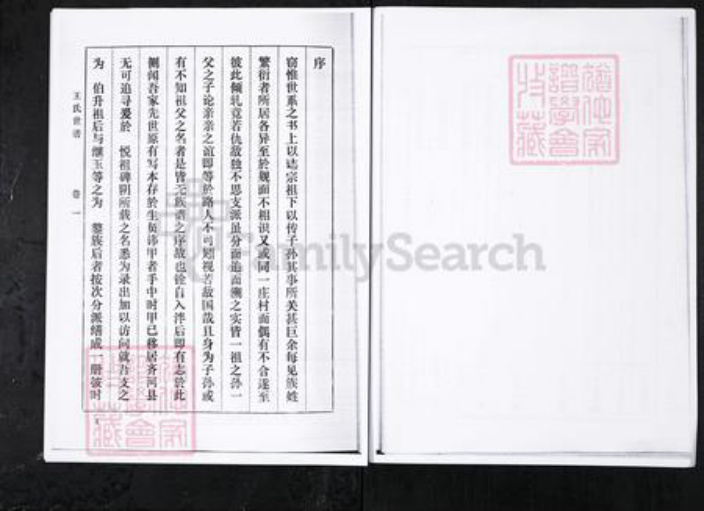 序
窃惟世系之书上以志宗祖下以传子孙其事所关甚巨余每见族姓
繁衍者所居各异至於觌面不相识又或同一庄村而偶有不合遂至
彼此倾轧竟若仇敌独不思支派虽分而追而溯之实皆一祖之孙一
父之子论亲亲之谊即等於路人不可矧视若敌国哉且身为子孙或
有不知祖父之名者是皆无族谱之序故也铨自入泮后即有志於此
侧闻吾家先世原有写本存於生员讳甲者手中时甲已移居齐河县
无可追寻爰於 悦祖碑阴所载之名悉为录出加以访问就吾支之
为 伯升祖后与继玉等之为 黎族后者按次分派缮成一册彼时
王氏世谱 卷一
谱学会
收藏
FamilySearch